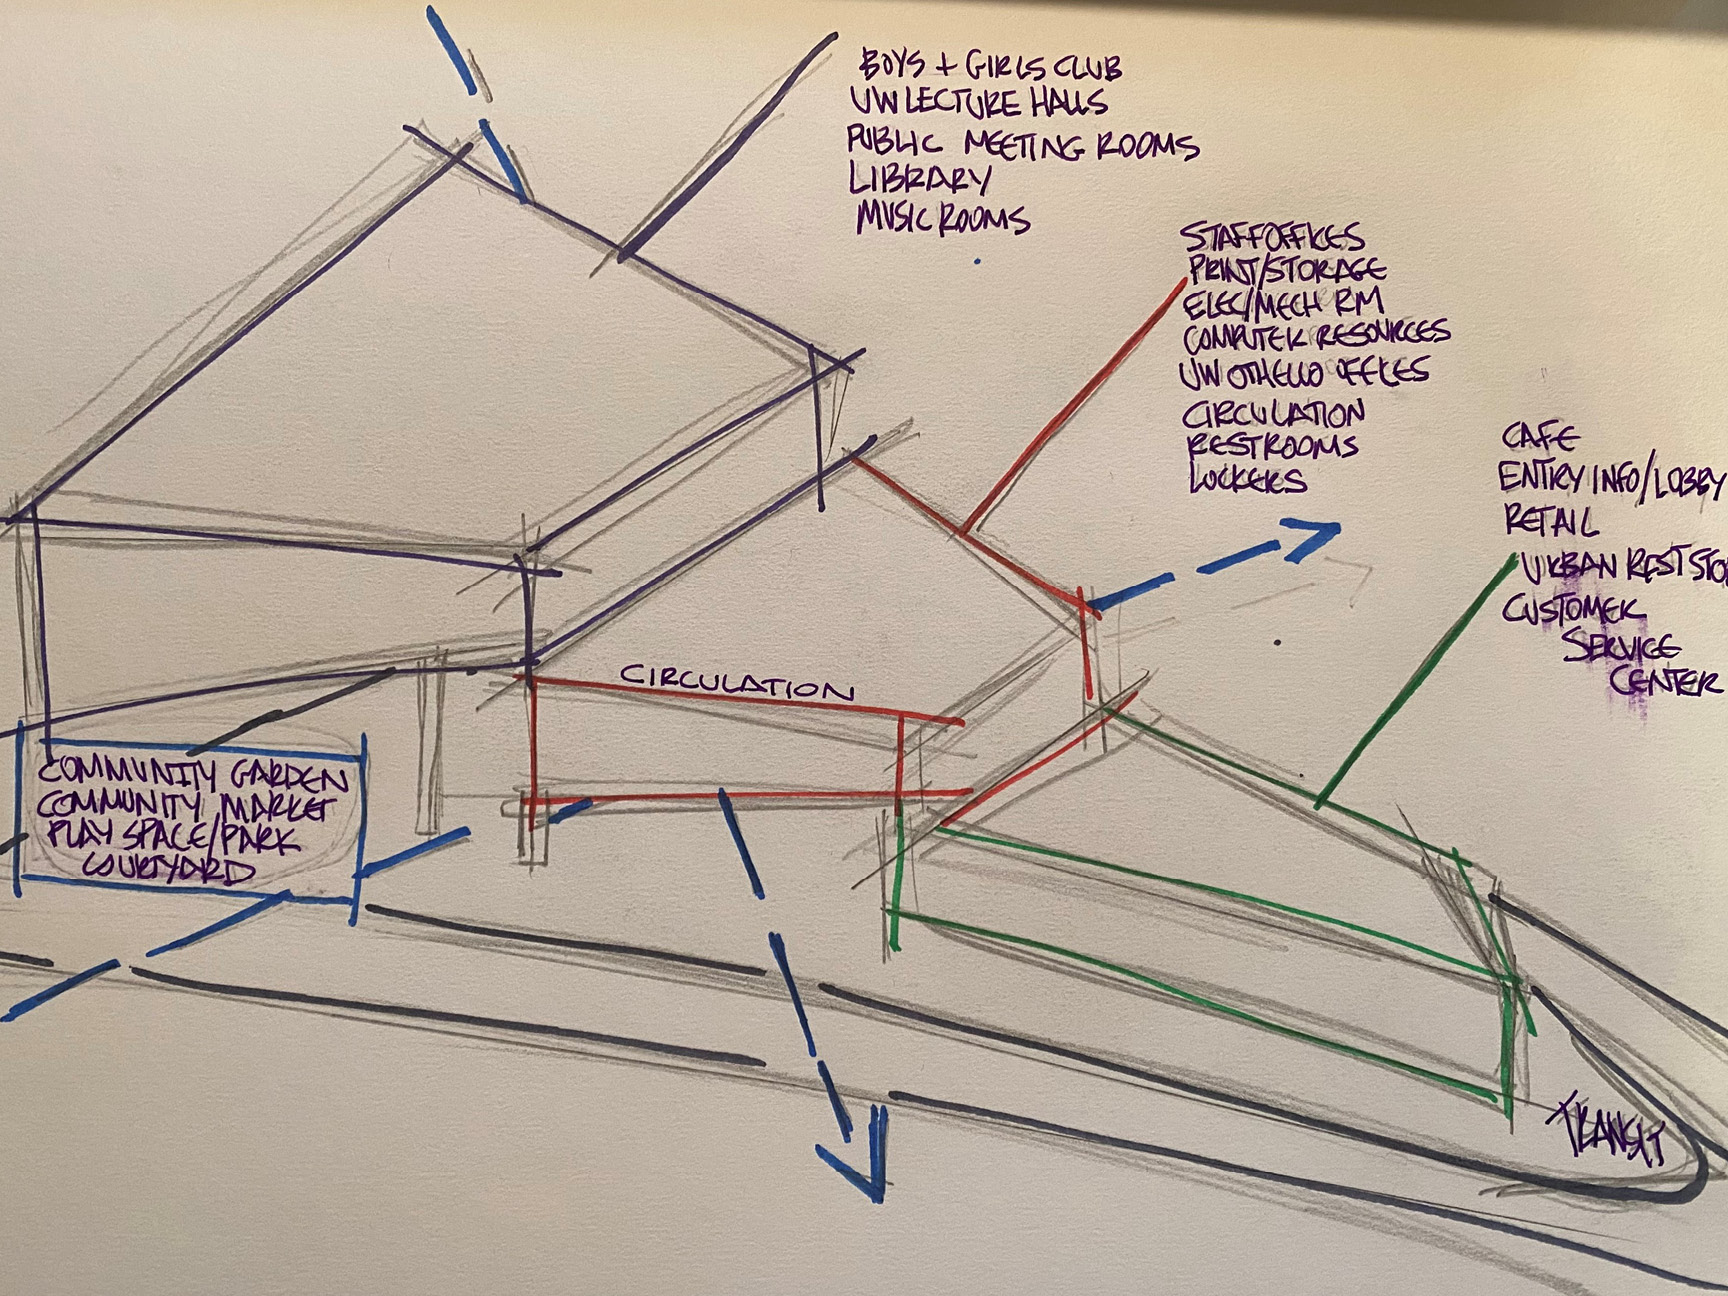 BOYS + GIRLS CLUB
UW LECTURE HALLS
PUBLIC MEETING ROOMS
LIBRARY
MUSIC ROOMS
STAFF OFFICES
PRINT/STORAGE
ELEC/MECH RM
COMPUTER RESOURCES
UW OTHELLO OFFICES
CIRCULATION
RESTROOMS
LOCKERS
CAFE
ENTRY INFO/LOBBY
RETAIL
URBAN REST STO
CUSTOMER
SERVICE
CENTER
CIRCULATION
COMMUNITY GARDEN
COMMUNITY MARKET
PLAY SPACE/PARK
COURTYARD
TRANSIT